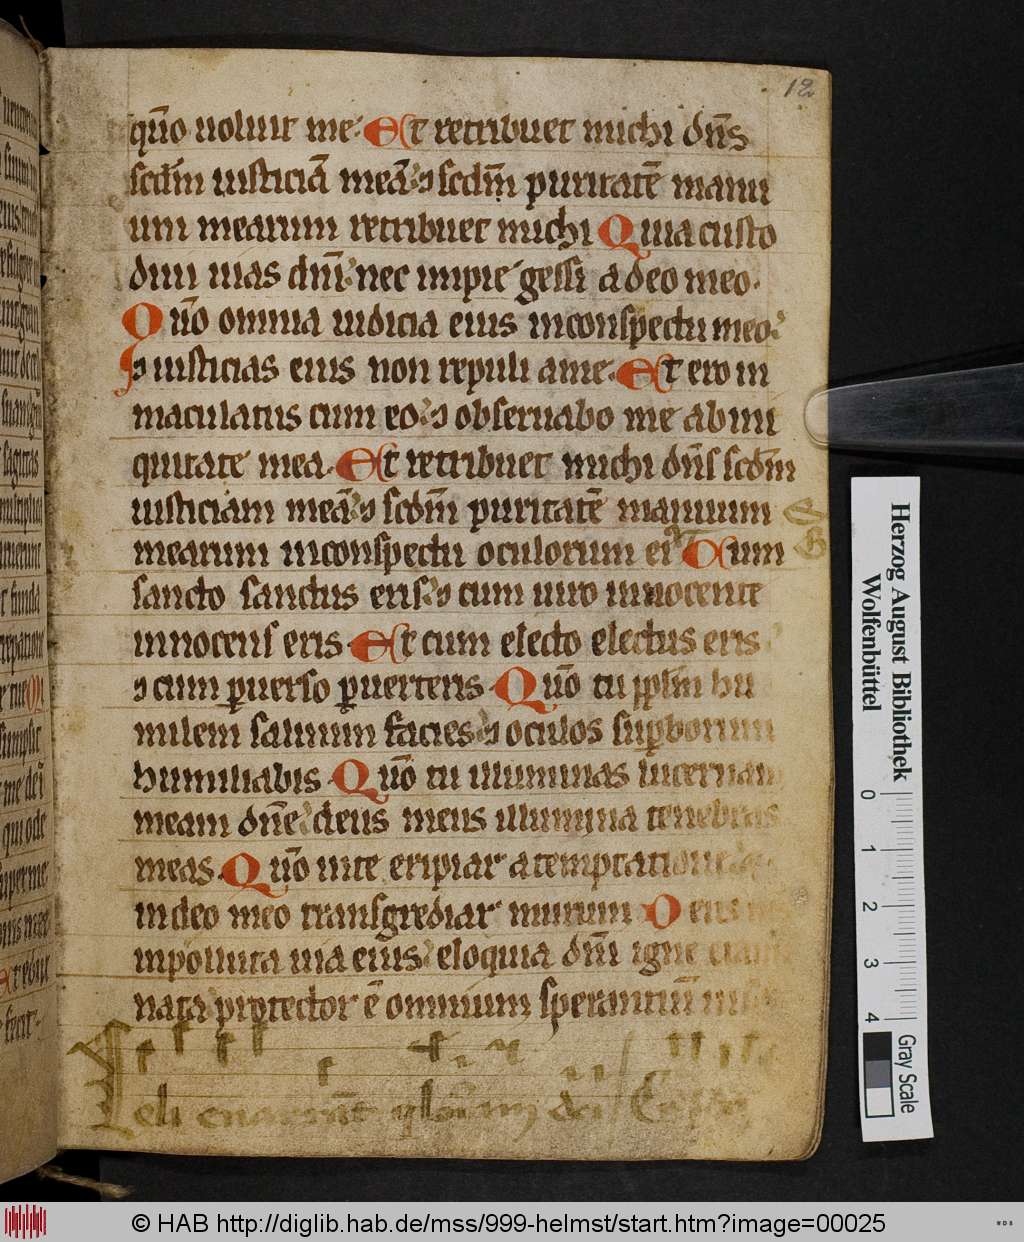 12
qūo uoluit me. Et retribuet michi dn̄s
scd̄m iusticiā meā ⁊ scd̄m puritatē manu
um mearum retribuet michi Quia custo
diui uias dnī nec impie gessi a deo meo.
Qūo omnia iudicia eius in conspectu meo
⁊ iusticias eius non repuli a me. Et ero in
maculatus cum eo ⁊ obseruabo me ab ini
quitate mea. Et retribuet michi dn̄s scd̄m
iusticiam meā ⁊ scd̄m puritatē manuum
mearum in conspectu oculorum ei⁹ Cum
sancto sanctus eris ⁊ cum uiro innocente
innocens eris. Et cum electo electus eris
⁊ cum ꝑuerso ꝑuerteris. Qūo tu ppl̄m hu
milem saluum facies ⁊ oculos suꝑborum
humiliabis. Qūo tu illuminas lucernam
meam dn̄e deus meus illumina tenebras
meas. Qūo in te eripiar a temptatione ⁊
in deo meo transgrediar murum Deus
inpolluta uia eius eloquia dn̄i igne
nata protector ē omnium sperantiū
Celi enarrāt gloriam dei
Herzog August Bibliothek
Wolfenbüttel
0 1 2 3 4
Gray Scale
© HAB http://diglib.hab.de/mss/999-helmst/start.htm?image=00025